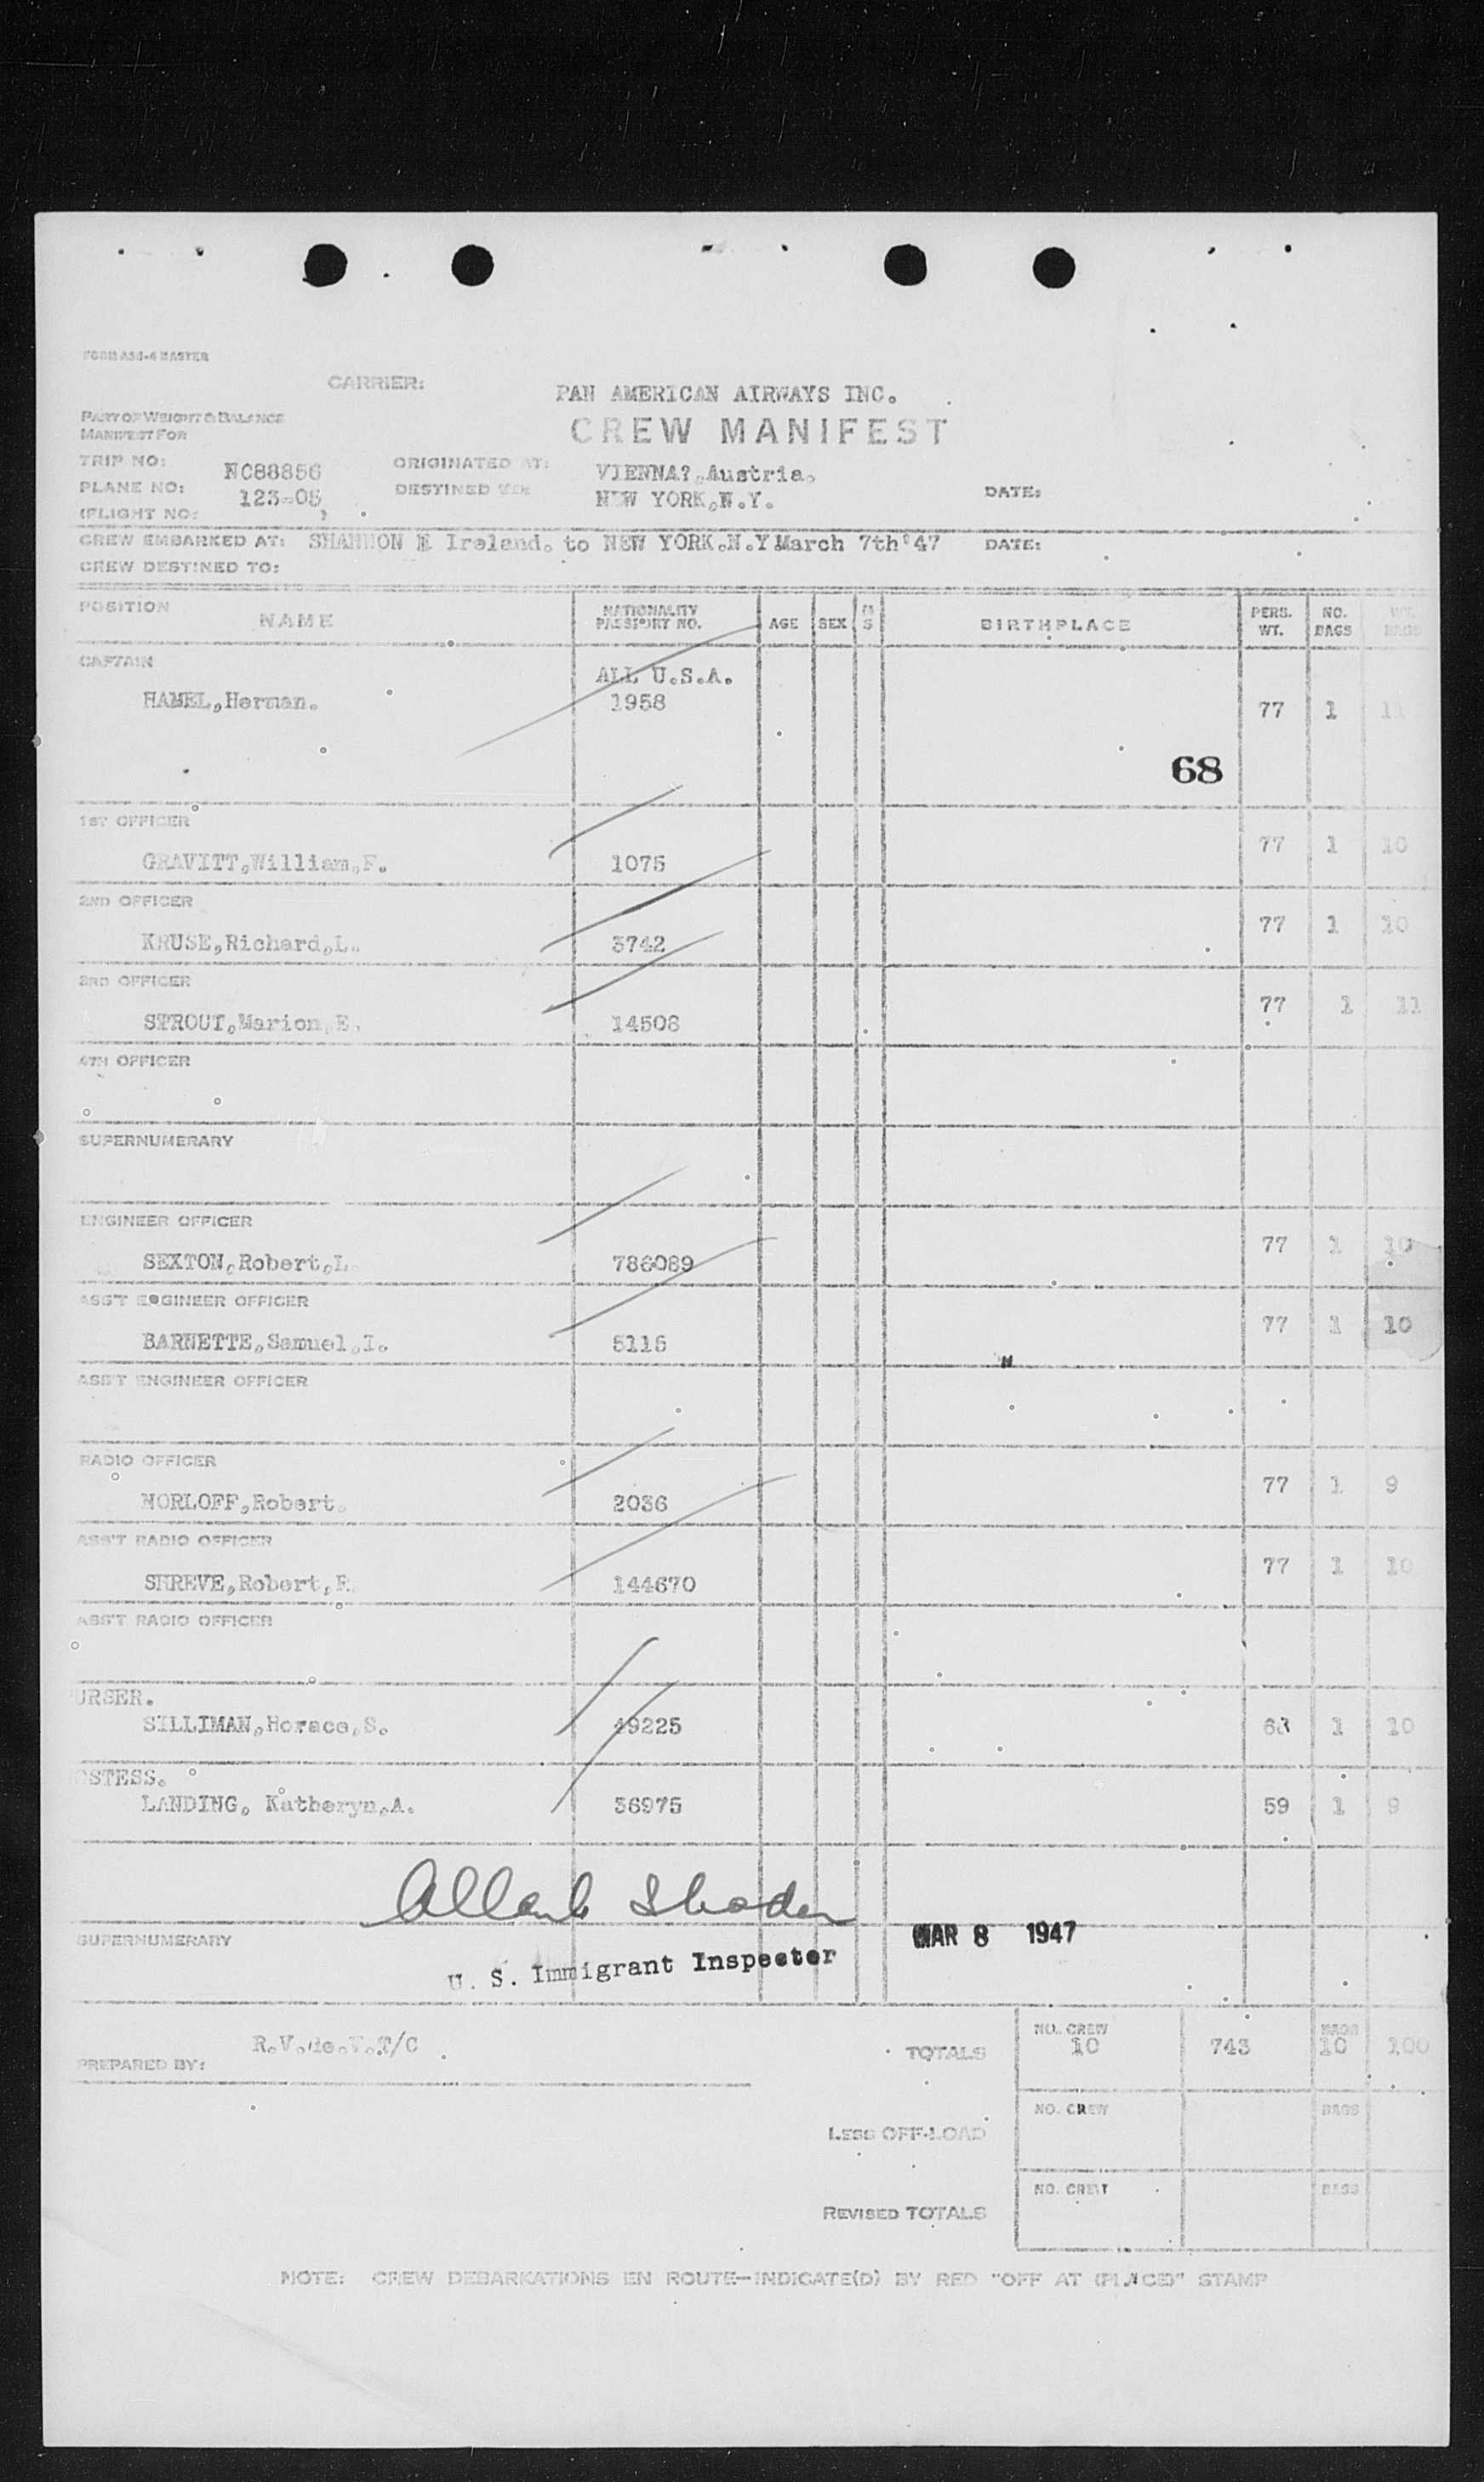 FORM ASD-4 MASTER
CARRIER: PAN AMERICAN AIRWAYS INC.
PART OF WEIGHT & BALANCE
MANIFEST FOR
CREW MANIFEST
TRIP NO: NC88856 ORIGINATED AT: VIENNA?,Austria.
PLANE NO: 123-05 DESTINED TO: NEW YORK,N.Y. DATE:
(FLIGHT NO: )
CREW EMBARKED AT: SHANNON E Ireland. to NEW YORK.N.Y March 7th'47 DATE:
CREW DESTINED TO:
POSITION NAME NATIONALITY PASSPORT NO. AGE SEX M S BIRTHPLACE PERS. WT. NO. BAGS WT. BAGS
CAPTAIN
ALL U.S.A.
HAMEL,Herman. 1958 77 1 11
68
1ST OFFICER
GRAVITT,William,F. 1075 77 1 10
2ND OFFICER
KRUSE,Richard,L. 3742 77 1 10
3RD OFFICER
STROUT,Marion,E. 14508 77 1 11
4TH OFFICER
SUPERNUMERARY
ENGINEER OFFICER
SEXTON,Robert,L 786089 77 1 10
ASS'T ENGINEER OFFICER
BARNETTE,Samuel,I. 5115 77 1 10
ASS'T ENGINEER OFFICER
RADIO OFFICER
NORLOFF,Robert. 2036 77 1 9
ASS'T RADIO OFFICER
SHREVE,Robert,R. 144670 77 1 10
ASS'T RADIO OFFICER
URSER.
SILLIMAN,Horace,S. 49225 68 1 10
OSTESS.
LANDING, Katheryn,A. 36975 59 1 9
SUPERNUMERARY
MAR 8 1947
U. S. Immigrant Inspector
R.V.de.V.T/C
PREPARED BY:
TOTALS NO. CREW 10 743 BAGS 10 100
LESS OFF-LOAD NO. CREW BAGS
REVISED TOTALS NO. CREW BAGS
NOTE: CREW DEBARKATIONS EN ROUTE—INDICATE(D) BY RED "OFF AT (PLACE)" STAMP